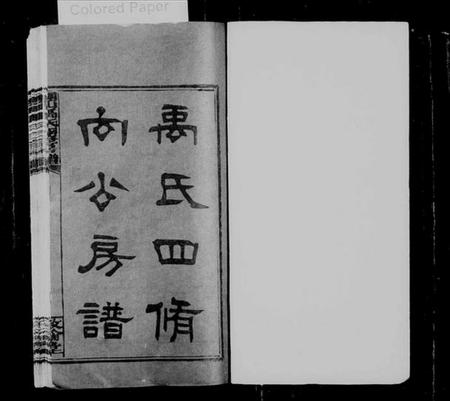 Colored Paper
禹氏四脩
向公房譜